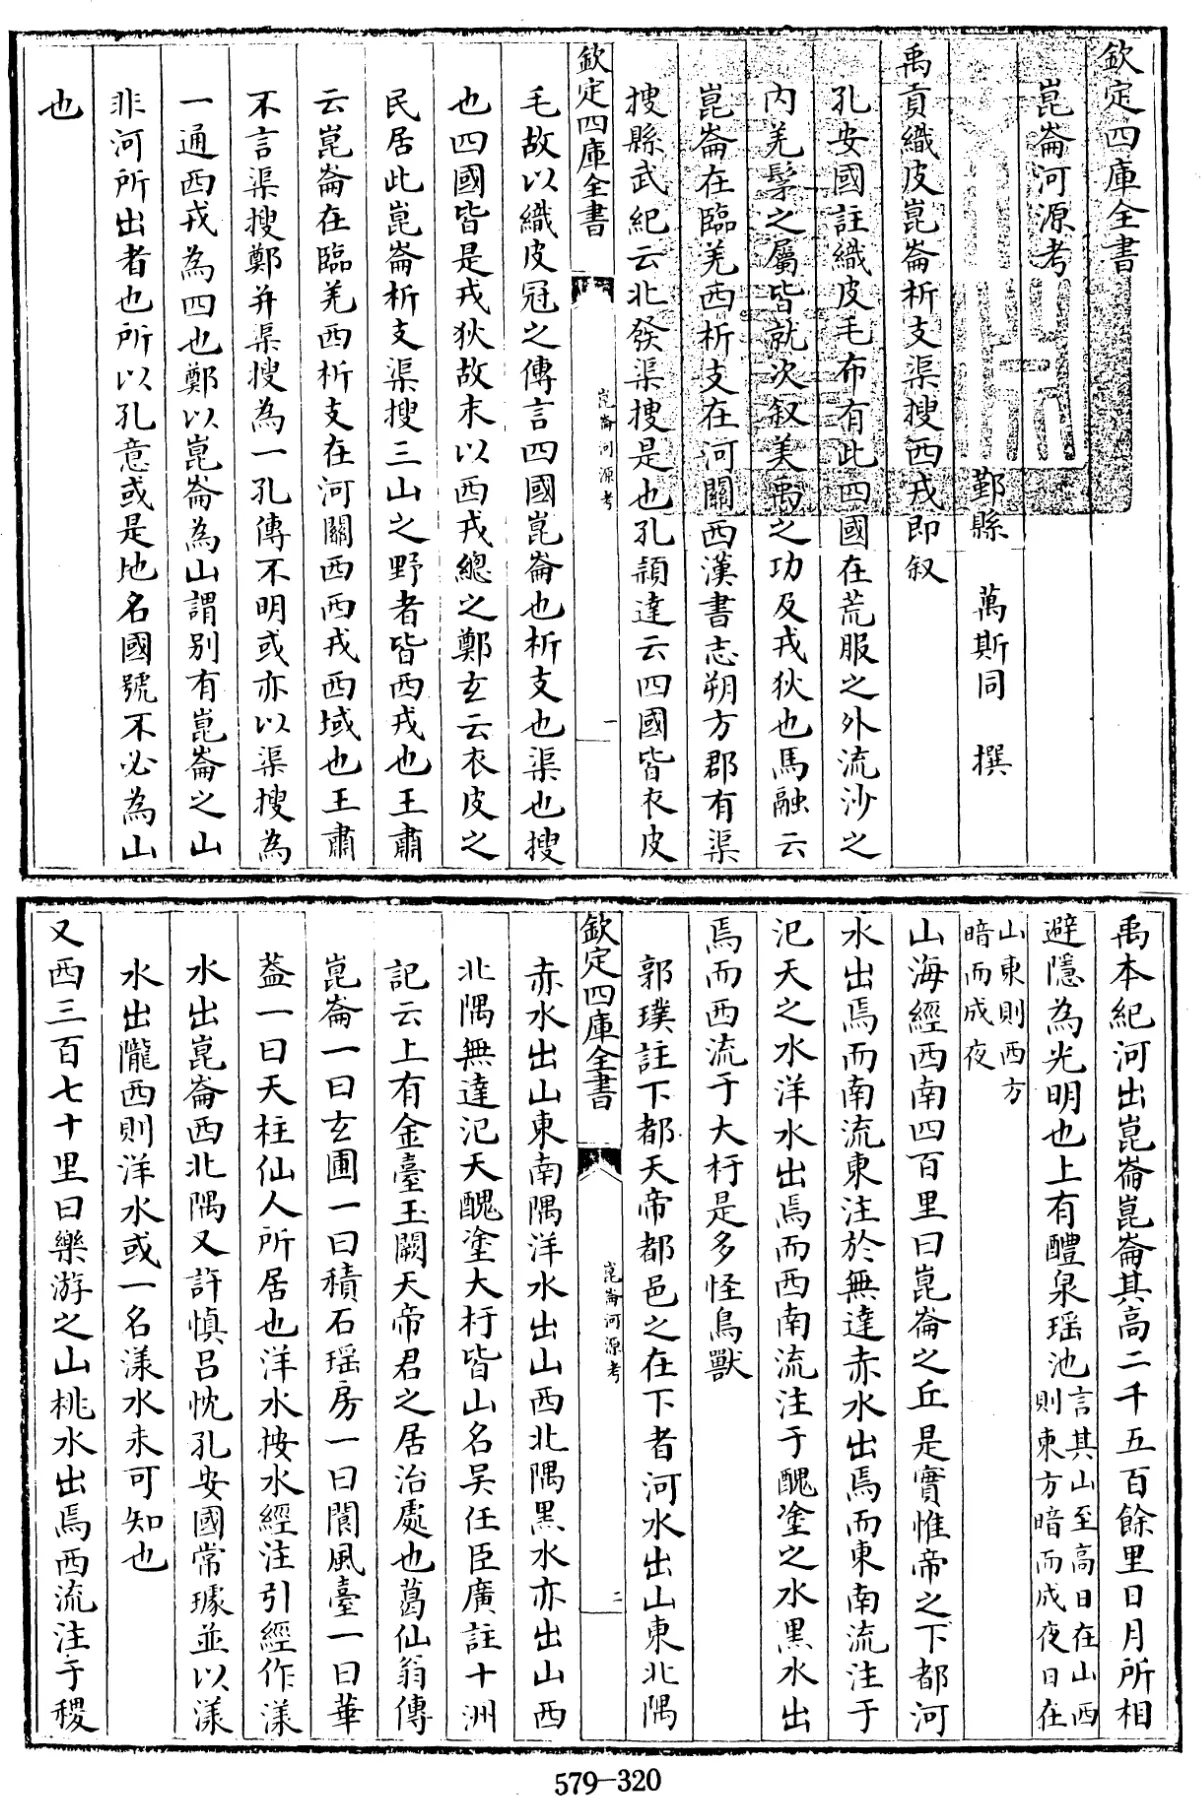 欽定四庫全書
崑崙河源考
鄞縣 萬斯同 撰
禹貢織皮崑崙析支渠搜西戎即叙
孔安國註織皮毛布有此四國在荒服之外流沙之
内羌髳之屬皆就次叙美禹之功及戎狄也馬融云
崑崙在臨羌西析支在河關西漢書志朔方郡有渠
搜縣武紀云北發渠搜是也孔頴達云四國皆衣皮
欽定四庫全書
崑崙河源考
一
毛故以織皮冠之傳言四國崑崙也析支也渠也搜
也四國皆是戎狄故末以西戎總之鄭玄云衣皮之
民居此崑崙析支渠搜三山之野者皆西戎也王肅
云崑崙在臨羌西析支在河關西西戎西域也王肅
不言渠搜鄭并渠搜為一孔傳不明或亦以渠搜為
一通西戎為四也鄭以崑崙為山謂别有崑崙之山
非河所出者也所以孔意或是地名國號不必為山
也
禹本紀河出崑崙崑崙其高二千五百餘里日月所相
避隱為光明也上有醴泉瑶池言其山至高日在山西則東方暗而成夜日在
山東則西方暗而成夜
山海經西南四百里曰崑崙之丘是實惟帝之下都河
水出焉而南流東注於無達赤水出焉而東南流注于
汜天之水洋水出焉而西南流注于醜塗之水黑水出
焉而西流于大杅是多怪鳥獸
郭璞註下都天帝都邑之在下者河水出山東北隅
欽定四庫全書
崑崙河源考
二
赤水出山東南隅洋水出山西北隅黑水亦出山西
北隅無達汜天醜塗大杅皆山名吴任臣廣註十洲
記云上有金臺玉闕天帝君之居治處也葛仙翁傳
崑崙一曰玄圃一曰積石瑶房一曰閬風臺一曰華
葢一曰天柱仙人所居也洋水按水經注引經作漾
水出崑崙西北隅又許慎吕忱孔安國常璩並以漾
水出隴西則洋水或一名漾水未可知也
又西三百七十里曰樂游之山桃水出焉西流注于稷
579-320